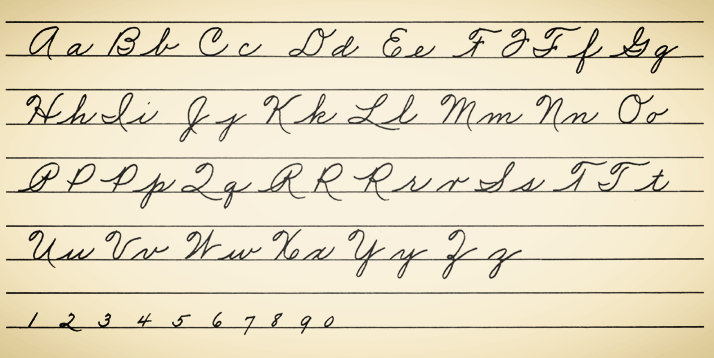 A a B b C c D d E e F F F f G g
H h I i J j K k L l M m N n O o
P P P p Q q R R R r r S s T T t
U u V v W w X x Y y y Z z
1 2 3 4 5 6 7 8 9 0